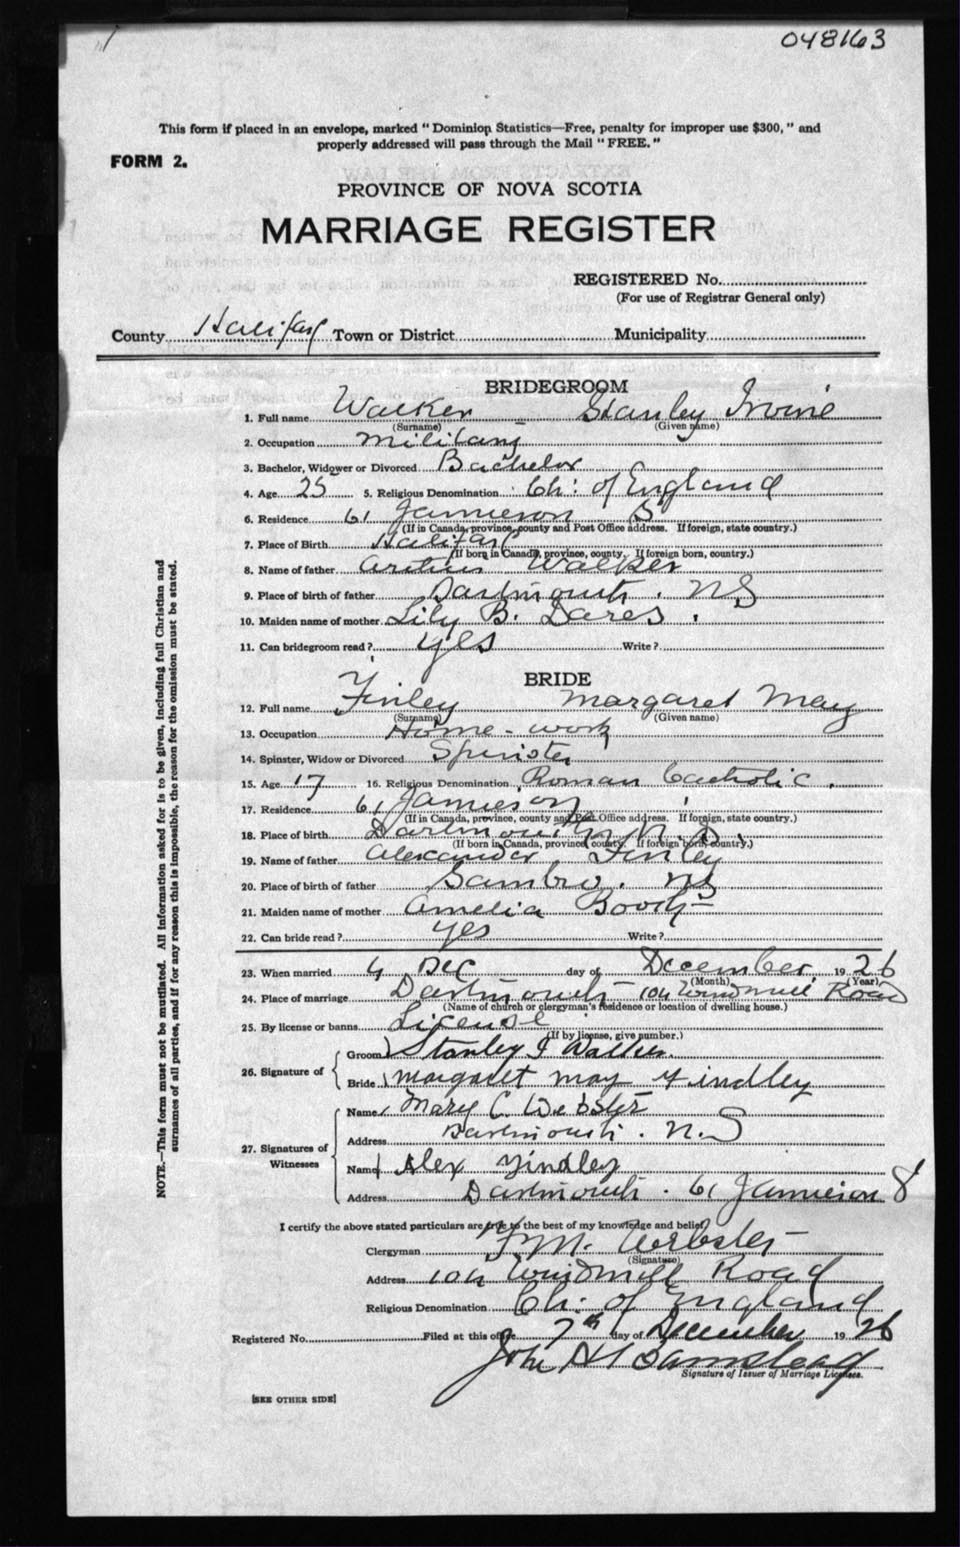 048163
This form if placed in an envelope, marked "Dominion Statistics—Free, penalty for improper use $300," and
properly addressed will pass through the Mail "FREE."
FORM 2.
PROVINCE OF NOVA SCOTIA
MARRIAGE REGISTER
REGISTERED No.
(For use of Registrar General only)
County Halifax Town or District Municipality
BRIDEGROOM
1. Full name Walker Stanley Irvine
(Surname) (Given name)
2. Occupation Military
3. Bachelor, Widower or Divorced Bachelor
4. Age 25 5. Religious Denomination Ch: of England
6. Residence 61 Jamieson S
(If in Canada, province, county and Post Office address. If foreign, state country.)
7. Place of Birth Halifax
(If born in Canada, province, county. If foreign born, country.)
8. Name of father Arthur Walker
9. Place of birth of father Dartmouth . NS
10. Maiden name of mother Lily B. Dares .
11. Can bridegroom read? yes Write?
BRIDE
12. Full name Finley Margaret May
(Surname) (Given name)
13. Occupation Home-work
14. Spinster, Widow or Divorced Spinster
15. Age 17 16. Religious Denomination Roman Catholic .
17. Residence 61 Jamieson
(If in Canada, province, county and Post Office address. If foreign, state country.)
18. Place of birth Dartmouth N.S.
(If born in Canada, province, county. If foreign born, country.)
19. Name of father Alexander Finley
20. Place of birth of father Sambro . NS
21. Maiden name of mother Amelia Booth
22. Can bride read? yes Write?
23. When married 4 Dec day of December 1926
(Month) (Year)
24. Place of marriage Dartmouth 104 Windmill Road
(Name of church or clergyman's residence or location of dwelling house.)
25. By license or banns License
(If by license, give number.)
26. Signature of
Groom Stanley I Walker.
Bride Margaret May Findley
27. Signatures of Witnesses
Name Mary C. Webster
Address Dartmouth . N.S
Name Alex Findley
Address Dartmouth . 61 Jamieson S
I certify the above stated particulars are true to the best of my knowledge and belief.
Clergyman Webster
(Signature)
Address 104 Windmill Road
Religious Denomination Ch: of England
Registered No. Filed at this office 7th day of December 1926
John H Bamstead
Signature of Issuer of Marriage Licenses.
[SEE OTHER SIDE]
NOTE.—This form must not be mutilated. All information asked for is to be given, including full Christian and
surnames of all parties, and if for any reason this is impossible, the reason for the omission must be stated.